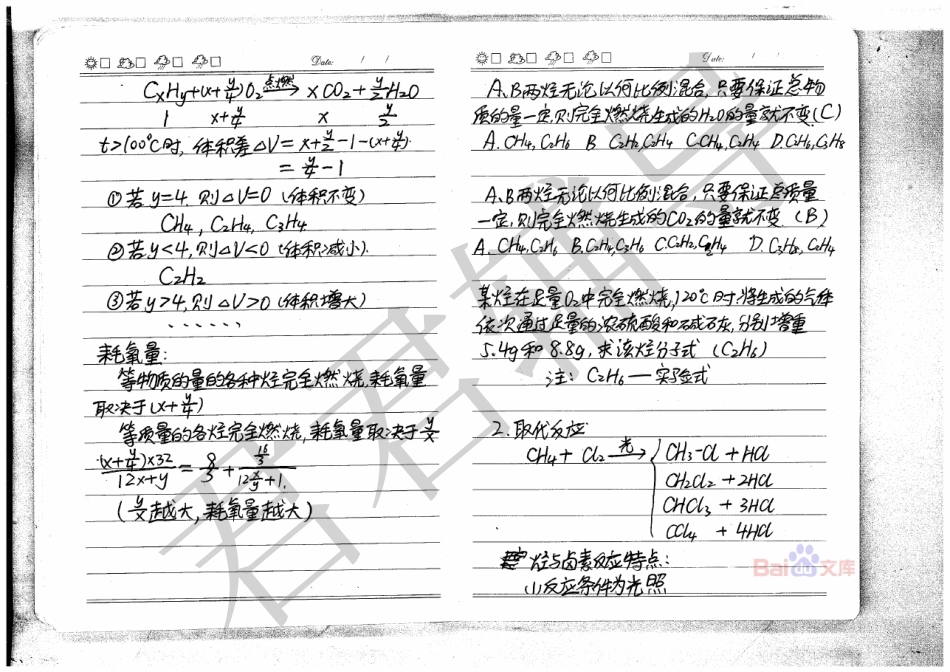 Date: / /
CxHy+(x+y/4)O2 点燃→ xCO2+y/2H2O
1 x+y/4 x y/2
t>100℃时, 体积差△V=x+y/2-1-(x+y/4)
=y/4-1
①若y=4, 则△V=0 (体积不变)
CH4, C2H4, C3H4
②若y<4, 则△V<0 (体积减小).
C2H2
③若y>4, 则△V>0 (体积增大)
......
耗氧量:
等物质的量的各种烃完全燃烧, 耗氧量
取决于(x+y/4)
等质量的各烃完全燃烧, 耗氧量取决于y/x
(x+y/4)×32/12x+y=8/3+16/3/12x/y+1.
(y/x越大, 耗氧量越大)
Date: / /
A、B两烃无论以何比例混合, 只要保证总物
质的量一定, 则完全燃烧生成的H2O的量就不变(C)
A. CH4, C2H6 B C2H2, C2H4 C.CH4, C2H4 D.C2H6, C3H8
A、B两烃无论以何比例混合, 只要保证总质量
一定, 则完全燃烧生成的CO2的量就不变 (B)
A. CH4, C2H6 B.C2H4, C3H6 C.C2H2, C2H4 D. C3H8, C2H4
某烃在足量O2中完全燃烧, 120℃时将生成的气体
依次通过足量的浓硫酸和碱石灰, 分别增重
5.4g和8.8g, 求该烃分子式 (C2H6)
注: C2H6—实验式
2. 取代反应
CH4+Cl2 光→ { CH3-Cl+HCl
CH2Cl2+2HCl
CHCl3+3HCl
CCl4+4HCl
烃与卤素反应特点:
(1)反应条件为光照
Bai du 文库
君君辅导